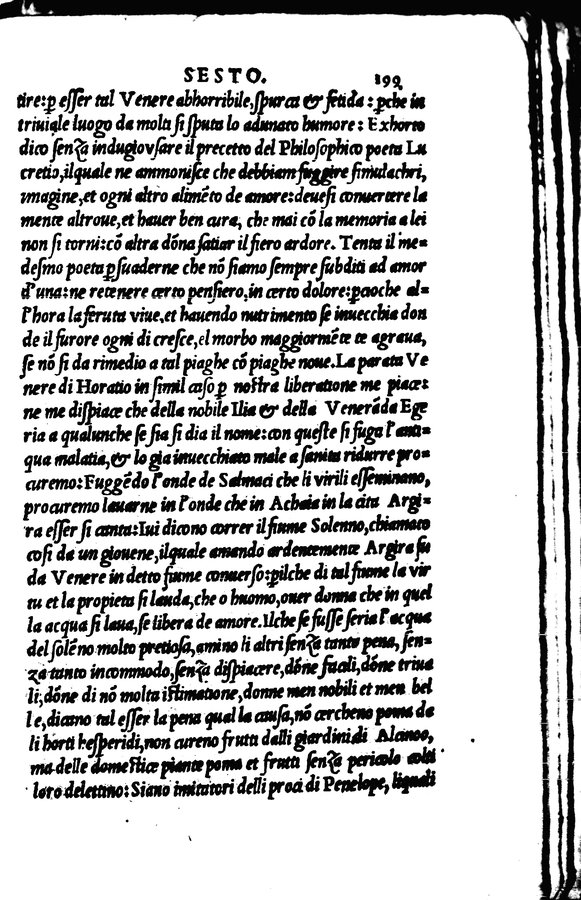 SESTO. 199
tire:ꝑ esser tal Venere abhorribile, spurca & fetida : ꝑche in
triuiale luogo da molti si sputa lo adunato humore : Exhorto
dico senza indugiovsare il precetto del Philosophico poeta Lu
cretio, ilquale ne ammonisce che debbiam fuggire simulachri,
imagine, et ogni altro alimẽto de amore: deuesi conuertere la
mente altroue, et hauer ben cura, che mai cõ la memoria a lei
non si torni: cõ altra dõna satiar il fiero ardore. Tenta il me=
desmo poeta ꝑsuaderne che nõ siamo sempre subditi ad amor
d'una: ne retenere certo pensiero, in certo dolore: ꝑcioche al=
l'hora la feruta viue, et hauendo nutrimento se inuecchia don
de il furore ogni di cresce, el morbo maggiormẽte te agraua,
se nõ si da rimedio a tal piaghe cõ piaghe noue. La parata Ve
nere di Horatio in simil caso ꝑ nostra liberatione me piace:
ne me dispiace che della nobile Ilia & della Venerãda Ege
ria a qualunche se sia si dia il nome: con queste si fuga l'anti=
qua malatia, & lo gia inuecchiato male a sanita ridurre pro=
curemo: Fuggẽdo l'onde de Salmaci che li virili esseminano,
procuremo lauarne in l'onde che in Achaia in la cita Argi=
ra esser si canta: Iui dicono correr il fiume Solenno, chiamato
cosi da un giouene, ilquale amando ardentemente Argira fu
da Venere in detto fiume conuerso: ꝑilche di tal fiume la vir
tu et la propieta si lauda, che o huomo, ouer donna che in quel
la acqua si laua, se libera de amore. Ilche se fusse seria l'acqua
del solẽno molto pretiosa, amino li altri senza tanta pena, sen=
za tanto incommodo, senza dispiacere, dõne facili, dõne triua
li, dõne di nõ molta istimatione, donne men nobili et men bel
le, dicano tal esser la pena qual la causa, nõ cercheno poma da
li horti hesperidi, non cureno frutti dalli giardini di Alcinoo,
ma delle domestice piante poma et frutti senza pericolo colti
loro delettino: Siano imitatori delli proci di Penelope, liquali